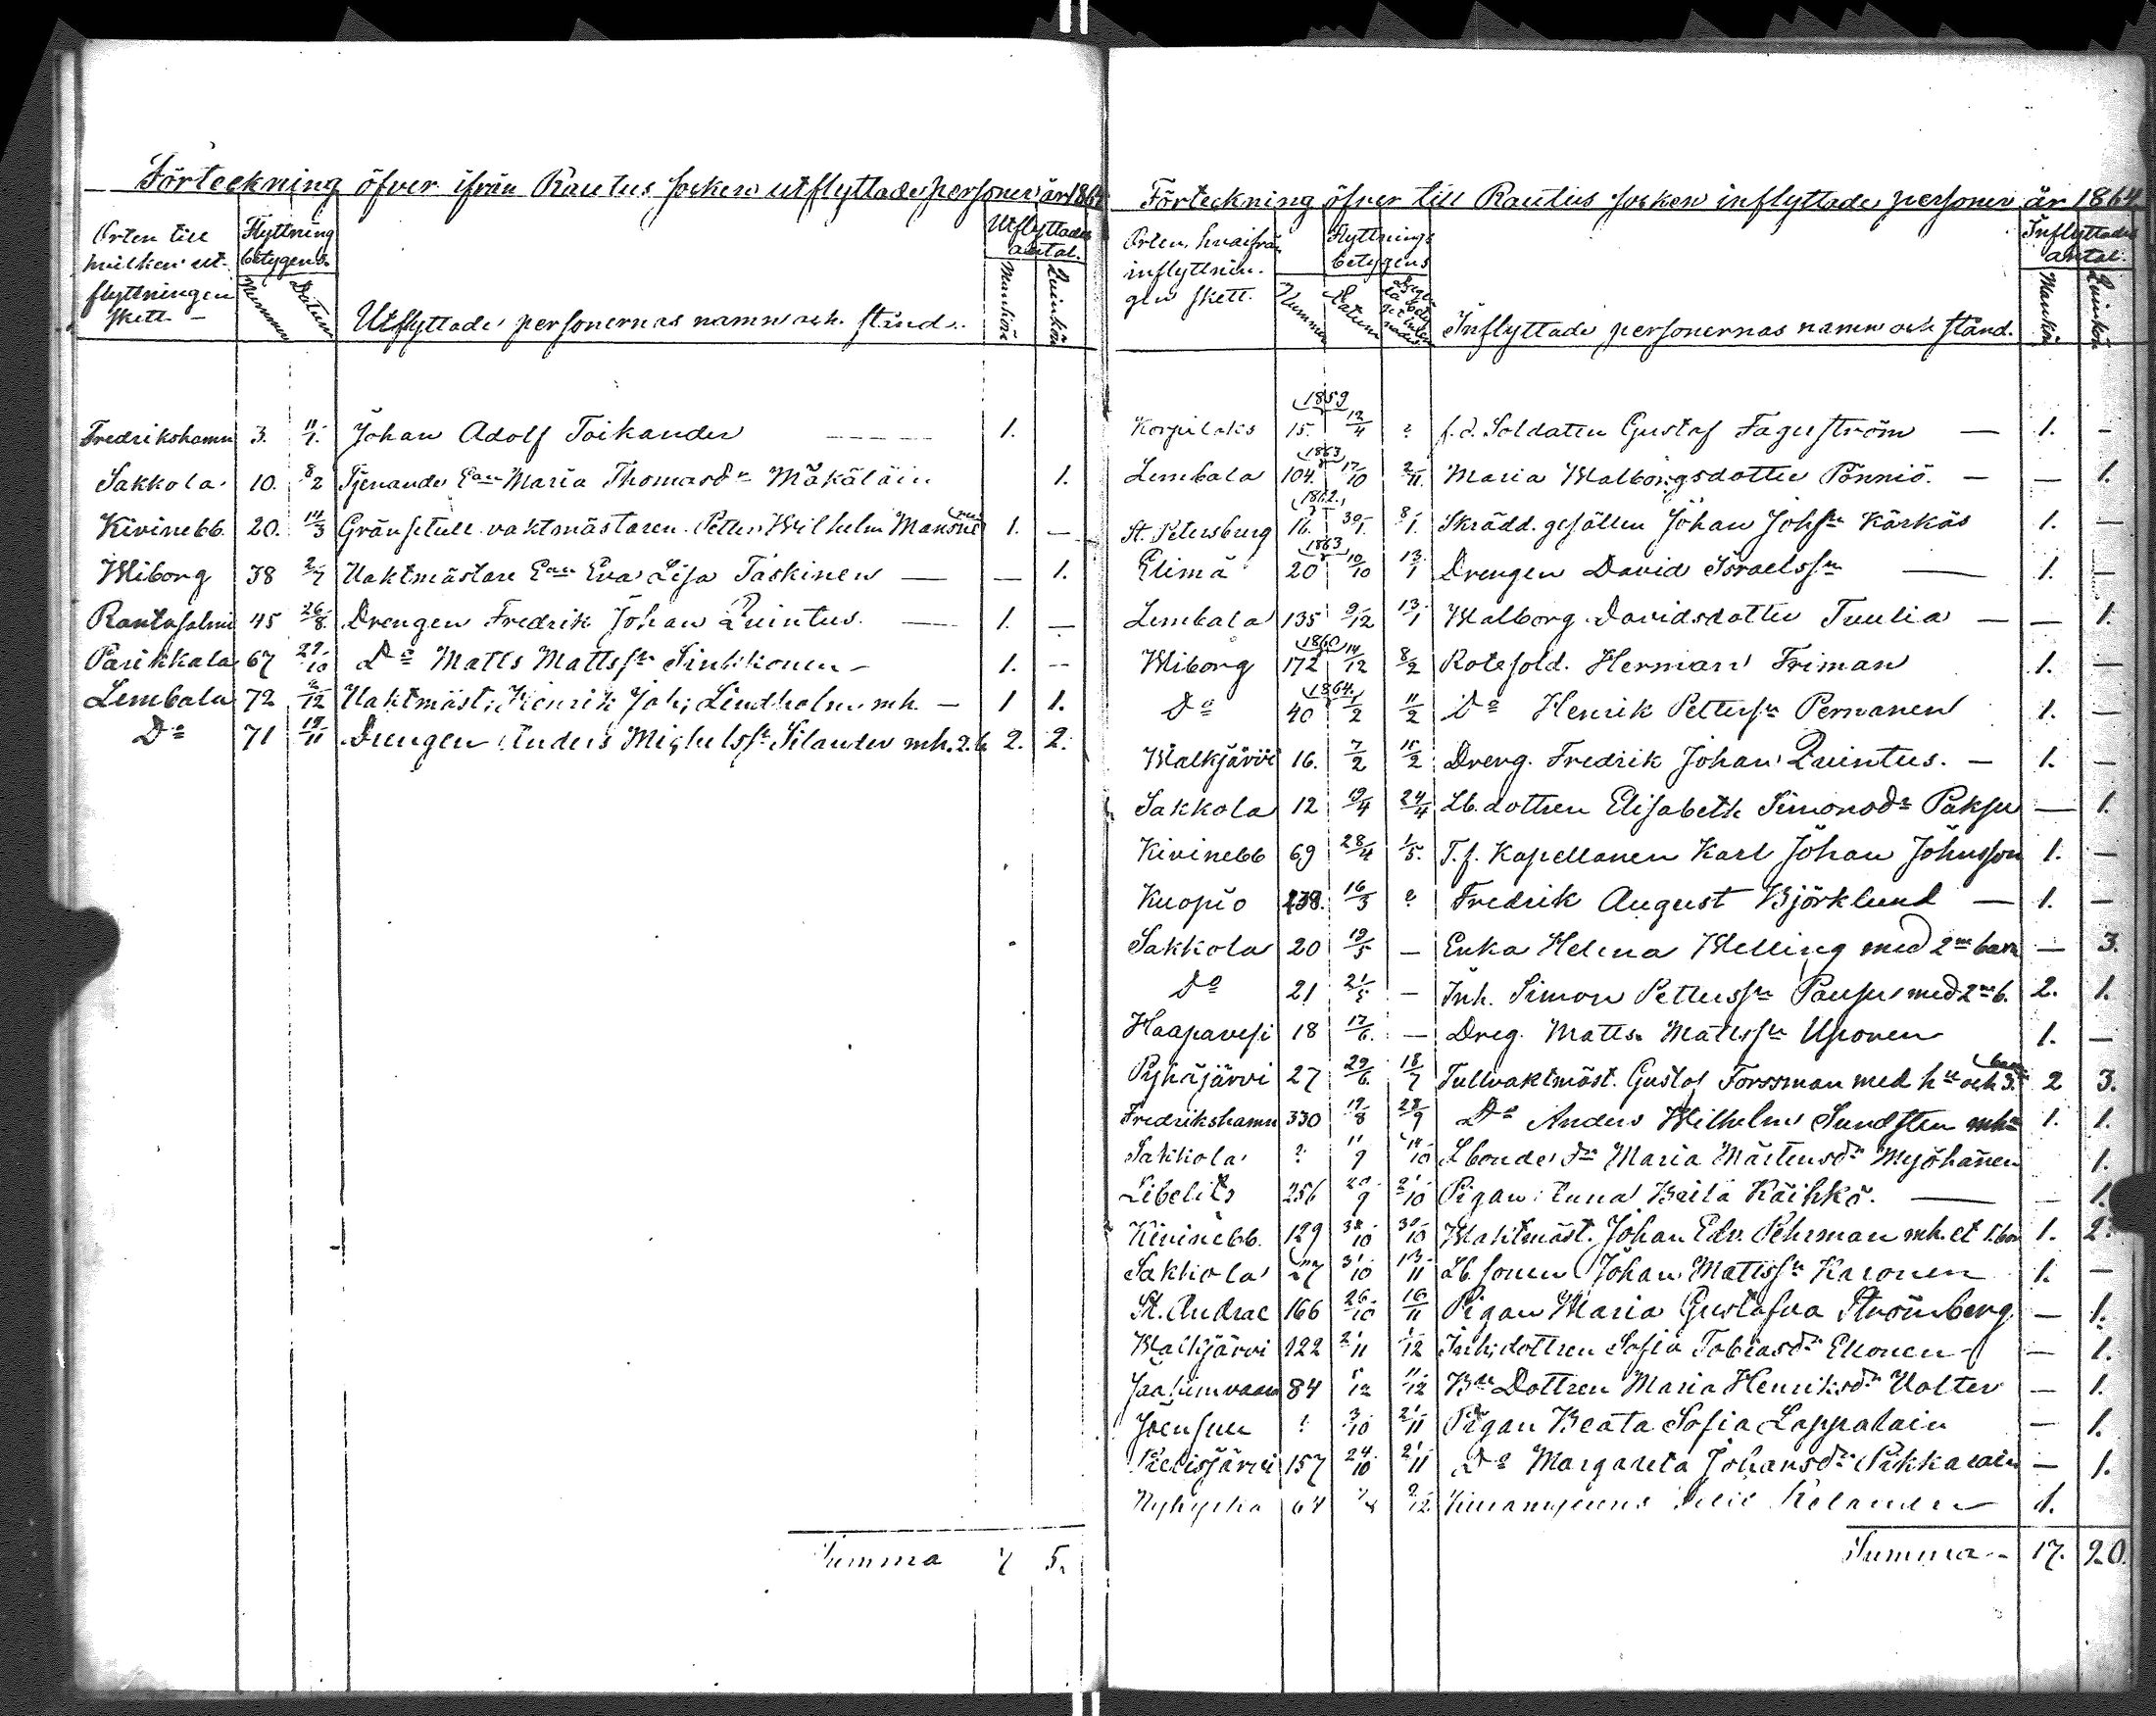 Förteckning öfver ifrån Rautus socken utflyttade personer år 1864
Orten till hvilken utflyttningen skett. Flyttning betygens Nummer Datum Utflyttade personernas namn och stånd. Utflyttades antal. Mankön Quinkön
Fredrikshamn 3. 11/1. Johan Adolf Toikander 1.
Sakkola 10. 8/2 Tjenande Maria Thomasdr Mäkäläin 1.
Kivinebb 20. 14/3 Gränsetull vaktmästaren Petter Wilhelm 1. —
Wiborg 38 2/7 Uaktmästare Eva Lisa Taskinen — — 1.
Rantasalmi 45 26/8 Drengen Fredrik Johan Quintus. — 1. —
Parikkala 67 29/10 Do Matts Mattssn Sinkkonen — 1. --
Lembala 72 /12 Uaktmäst; Henrik Joh; Lindholm mh. — 1 1.
Do 71 19/11 Drengen Anders Michelssn Silander mh. 2.b. 2. 2.
Summa 7 5.
Förteckning öfver till Rautus socken inflyttade personer år 1864
Orten, hvaifrån inflyttningen skett. Flyttnings betygens Nummer Datum Inflyttade personernas namn och stånd. Inflyttades antal. Mankön Quinkön
1859
Korpilaks 15. 12/4 ? f.d. Soldaten Gustaf Fagerström — 1. -
1863
Lembala 104. 17/10 2/11. Maria Walborgsdotter Pönniö. — — 1.
1862.
St. Petersburg 16. 30/1. 8/1. Skrädd. gesällen Johan Johssn Kärkäs 1. —
1863
Elimä 20 10/10 13/1 Drengen David Israelssn — 1. —
Lembala 135 9/12 13/1 Walborg Davidsdotter Tuulia — — 1.
1860
Wiborg 172 14/12 8/2 Rotesold. Herman Friman 1. —
1864.
Do 40 1/2 11/2 Do Henrik Petterssn Pernanen 1. —
Walkjärvi 16. 7/2 15/2 Dreng. Fredrik Johan Quintus. — 1. —
Sakkola 12 19/4 24/4 Lb. dottren Elisabeth Simonsdr Paksu — 1.
Kivinebb 69 28/4 1/5. T.f. Kapellanen Karl Johan Johnsson 1. —
Kuopio 238. 16/3 ? Fredrik August Björklund — 1. —
Sakkola 20 19/5 — Enka Helena Welling med 2ne barn — 3.
Do 21 21/5 — Inh. Simon Petterssn Pausu med 2ne b. 2. 1.
Haapavesi 18 17/6. — Dreg. Matts Mattssn Uponen 1. —
Pyhäjärvi 27 29/6. 18/7 Tullvaktmäst. Gustaf Forssman med hu och 3. barn 2 3.
Fredrikshamn 330 19/8 28/9 Do Anders Wilhelm Sundsten mhu 1. 1.
Sakkola ? 11/9 14/10 Lbonde dr Maria Mårtensdr Myöhänen 1.
Libelits 256 20/9 2/10 Pigan Anna Brita Käihkö. — — 1.
Kivinebb. 129 30/10 Waktmäst. Johan Edv. Pehrman mh. et 1. barn 1. 2.
Sakkola 27 31/10 13/11 Lb. sonen Johan Mattssn Karonen 1. —
St. Andrae 166 26/10 16/11 Pigan Maria Gustafva Strömberg — 1.
Walkjärvi 122 2/11 1/12 Inh; dottren Sofia Tobiasdr Ekonen — 1.
84 5/12 11/12 Dottren Maria Henriksdr Uolter — 1.
Joensuu ? 3/10 2/11 Pigan Beata Sofia Lappalain — 1.
Pielisjärvi 157 24/10 2/11 Do Margareta Johansdr Pikkarain — 1.
64 /12 1.
Summa 17. 20.